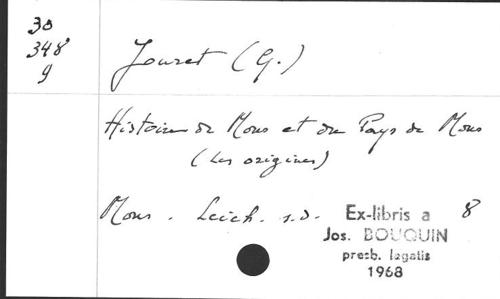 30
348
9
Jouret (G.)
Histoire de Mons et du Pays de Mons
(Les origines)
Mons. Leich. s.d. 8
Ex-libris a
Jos. BOUQUIN
presb. legatis
1968